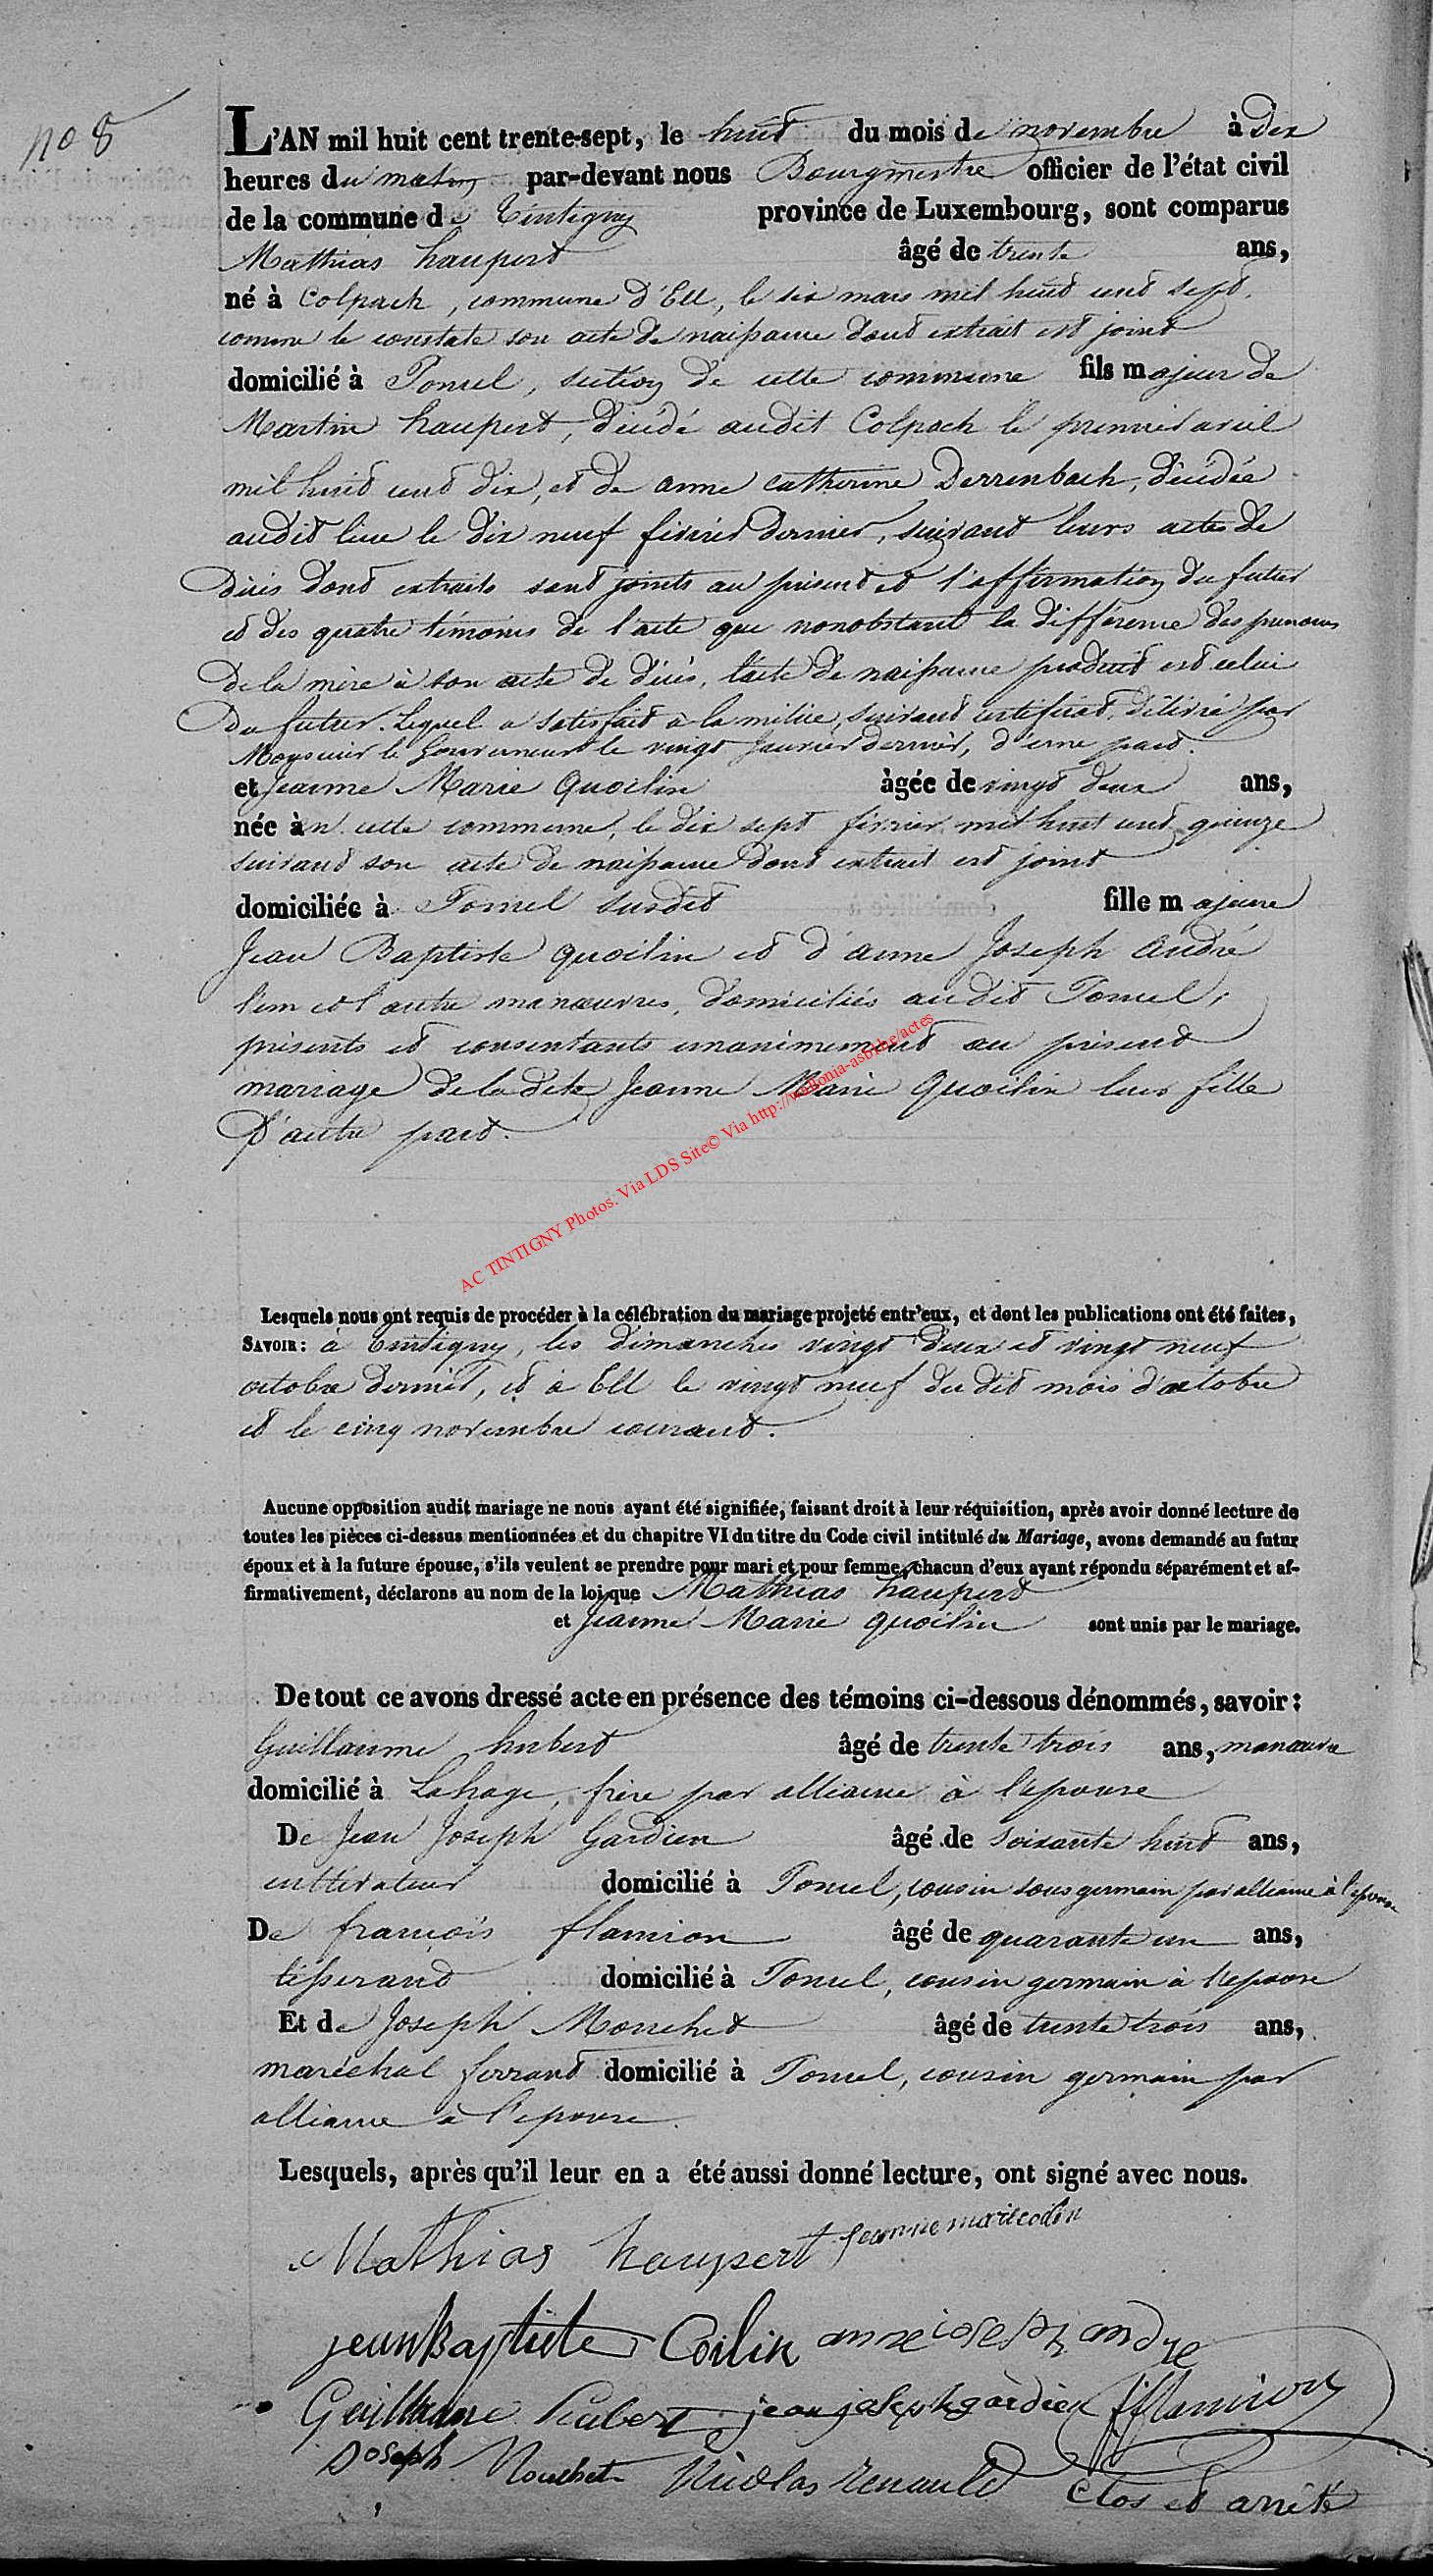 no 8
L'AN mil huit cent trente-sept, le huit du mois de novembre à dix
heures du matin par-devant nous Bourgmestre officier de l'état civil
de la commune de Tintigny province de Luxembourg, sont comparus
Mathias haupert âgé de trente ans,
né à Colpach, commune d'Ell, le six mars mil huit cent sept,
comme le constate son acte de naissance dont extrait est joint
domicilié à Poncel, section de cette commune fils majeur de
Martin haupert, décédé audit Colpach le premier avril
mil huit cent dix, et de anne catherine Derrenbach, décédée
audit lieu le dix neuf février dernier, suivant leurs actes de
décès dont extraits sont joints au présent et l'affirmation du futur
et des quatre témoins de l'acte que nonobstant la différence des prenoms
de la mère à son acte de décès, l'acte de naissance produit est celui
du futur. Lequel a satisfait à la milice, suivant certificat, délivré par
Monsieur le Gouverneur le vingt Janvier dernier, d'une part.
et Jeanne Marie Quoilin âgée de vingt deux ans,
née àn cette commune, le dix sept février mil huit cent quinze
suivant son acte de naissance dont extrait est joint
domiciliée à Poncel susdit fille majeure
Jean Baptiste quoilin et d'anne Joseph André
l'un et l'autre manœuvres, domiciliés audit Poncel,
présents et consentants unanimement au présent
mariage de la dite Jeanne Marie Quoilin leur fille
d'autre part.
AC TINTIGNY Photos. Via LDS Site© Via http://wallonia-asbl.be/actes
Lesquels nous ont requis de procéder à la célébration du mariage projeté entr'eux, et dont les publications ont été faites,
SAVOIR: à Tintigny, les dimanches vingt deux et vingt neuf
octobre dernier, et à Ell le vingt neuf du dit mois d'octobre
et le cinq novembre courant.
Aucune opposition audit mariage ne nous ayant été signifiée, faisant droit à leur réquisition, après avoir donné lecture de
toutes les pièces ci-dessus mentionnées et du chapitre VI du titre du Code civil intitulé du Mariage, avons demandé au futur
époux et à la future épouse, s'ils veulent se prendre pour mari et pour femme, chacun d'eux ayant répondu séparément et af-
firmativement, déclarons au nom de la loi que Mathias haupert
et Jeanne Marie quoilin sont unis par le mariage.
De tout ce avons dressé acte en présence des témoins ci-dessous dénommés, savoir:
Guillaume hubert âgé de trente trois ans, manœuvre
domicilié à Lahage, frère par alliance à l'epouse
De Jean Joseph Gardien âgé de soixante huit ans,
cultivateur domicilié à Poncel, cousin sous germain par alliance à l'epouse
De françois flamion âgé de quarante un ans,
tisserand domicilié à Poncel, cousin germain à l'epouse
Et de Joseph Mouchet âgé de trente trois ans,
maréchal ferrant domicilié à Poncel, cousin germain par
alliance à l'epouse.
Lesquels, après qu'il leur en a été aussi donné lecture, ont signé avec nous.
Mathias haupert Jeanne marie coilin
jean Baptiste Coilin anne ioseph andre
Guillaume hubert jean joseph gardien f flamion
Joseph Mouchet Nicolas renauld Clos et arrêté